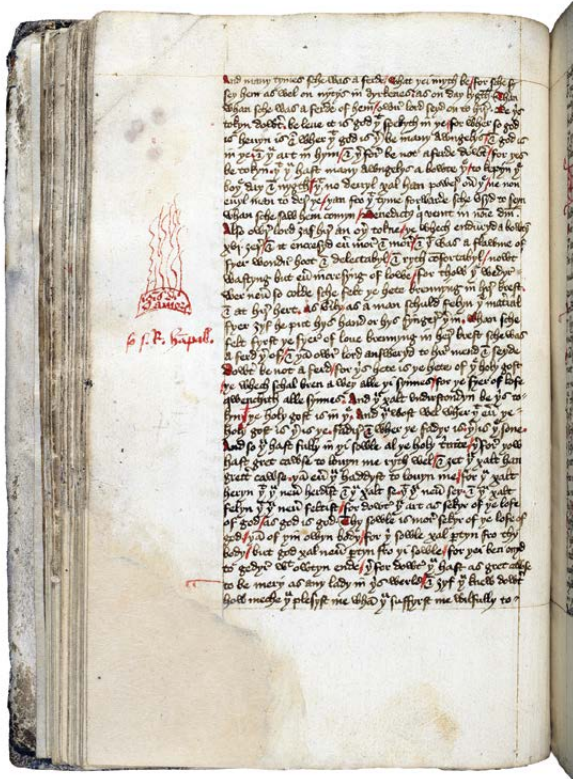 And many tymes sche was a ferde what yei myth be / for sche sey
hem as wel on nytys in dyrkenes as on day lygth / Than
whan sche was a ferde of hem / owr lord seyd on to hir Be yis
tokyn dowt̉ be leue it is god yt spekyth in ye for wher so god
is heuyn is & wher yt god is yr be many Awngelys / & god is
in ye & yu art in hym / & yrfor be not a ferde dowt̉ / for yes
be tokyn yt yu hast many Awngelys a bowte ye / to kepyn ye
boy day & nygth / yt no deuyl xal han power ouyr ye ne non
euyl man to der ye / yan fro yt tyme forwarde sche vsyd to seyn
whan sche saw hem comyn / Benedictus qui venit in noie dni.
Also owr lord zaf hir an oyr tokne / ye whech enduryd a bowtyn
xvj zer / & it encresyd eur mor & mor / & yt was a flawme of
fyer wondir hoot & delectabyl / & ryth cofortabyl / nowt
wastyng but eur incresyng of lowe / for thow ye wedyr
wer neur so colde sche felt ye hete brennyng in hir brest
& at hir hert. as verily as a man schuld felyn ye matial
fyer zyf he put hys hand or hys fynger yr in. whan sche
felt fyrst ye fyer of loue brennyng in her brest sche was
a ferd yr of / & yan owr lord answeryd to hir mend & seyde
dowt̉ be not a ferd / for yis hete is ye hete of ye holy gost
ye whech schal bren a wey alle yi synnes / for ye fyer of lofe
qwenchith alle synnes. And yu xalt vndirstondyn be yis to
kyn ye holy gost is in ye. And yu wost wel wher yt eur ye
holy gost is yr is ye fadyr & wher ye fadyr is yr is ye sone
And so yu hast fully in yi sowle al ye holy trinite / yrfor yow
hast gret cawse to louyn me ryth wel / & zet yu xalt han
grett cawse yan eur yu haddyst to louyn me / for yu xalt
heryn yt yu neur herdist & yu xalt se yt yu neur sey & yu xalt
felyn yt yu neur feltist / for dowt̉ yu art as sekyr of ye lofe
of god / as god is god. Thy sowle is mor sekyr of ye lofe of
god / yan of yin owyn body / for yi sowle xal ptyn fro thy
body / but god xal neur ptyn fro yi sowle / for yei ben onyd
to gedyr wt owtyn ende / yrfor dowt̉ yu hast as gret cawse
to be mery as any lady in yis werld / & zyf yu knew dowt̉
how meche yu plesyst me whan yu suffyrst me wilfully to
ignis diuini amoris
so s. R. hampall.